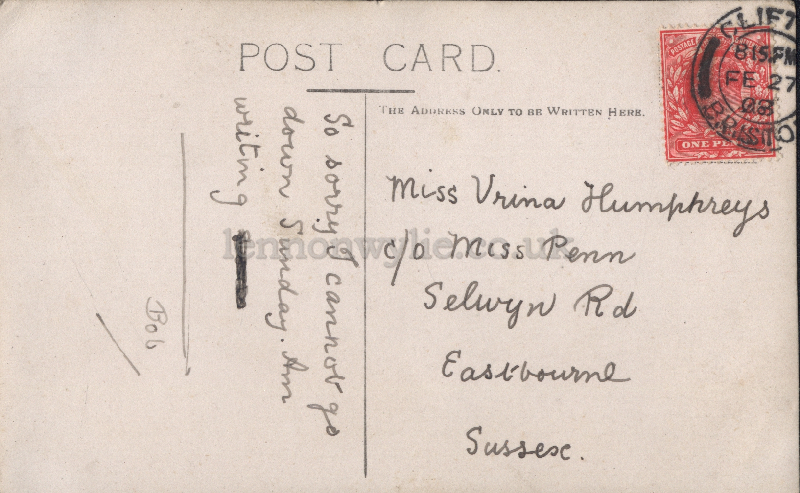 POST CARD.
THE ADDRESS ONLY TO BE WRITTEN HERE.
CLIFT
8 15 PM
FE 27
08
BRISTO
POSTAGE
ONE PE
So sorry I cannot go
down Sunday. Am
writing
Bob
Miss Vrina Humphreys
c/o Miss Penn
Selwyn Rd
Eastbourne
Sussex.
lennonwylie.co.uk